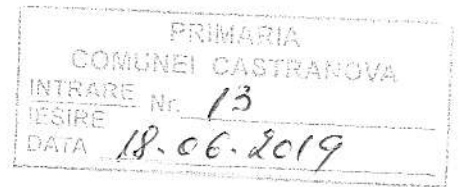 PRIMARIA
COMUNEI CASTRANOVA
INTRARE
IESIRE Nr. 13
DATA 18.06.2019